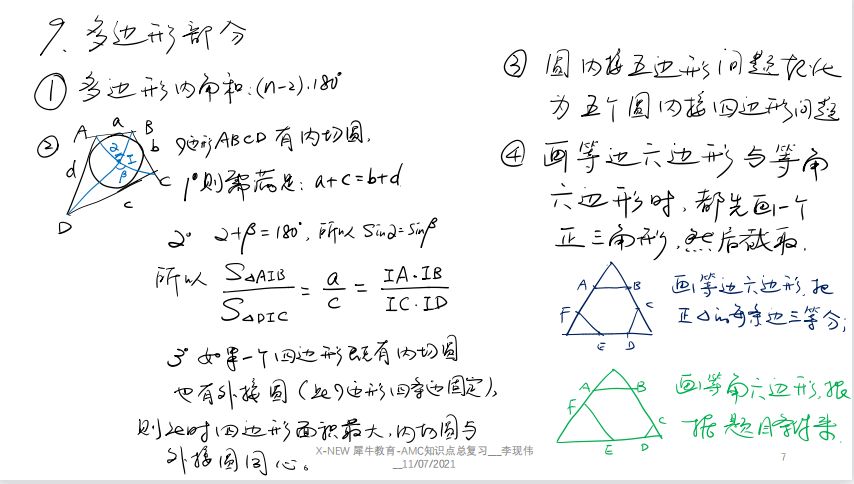 9、多边形部分
① 多边形内角和:(n-2)·180°
② A a B b C c D d I α β
四边形ABCD有内切圆,
1° 则需满足: a+c=b+d
2° α+β=180°, 所以 sinα=sinβ
所以 S△AIB/S△DIC = a/c = IA·IB/IC·ID
3° 如果一个四边形既有内切圆
也有外接圆(此四边形四条边固定),
则此时四边形面积最大,内切圆与
外接圆同心。
③ 圆内接五边形问题转化
为五个圆内接四边形问题
④ 画等边六边形与等角
六边形时,都先画一个
正三角形,然后截取.
A B C D E F
画等边六边形,把
正△的每条边三等分;
A B C D E F
画等角六边形,根
据题目条件来.
X-NEW 犀牛教育-AMC知识点总复习__李现伟
__11/07/2021
7